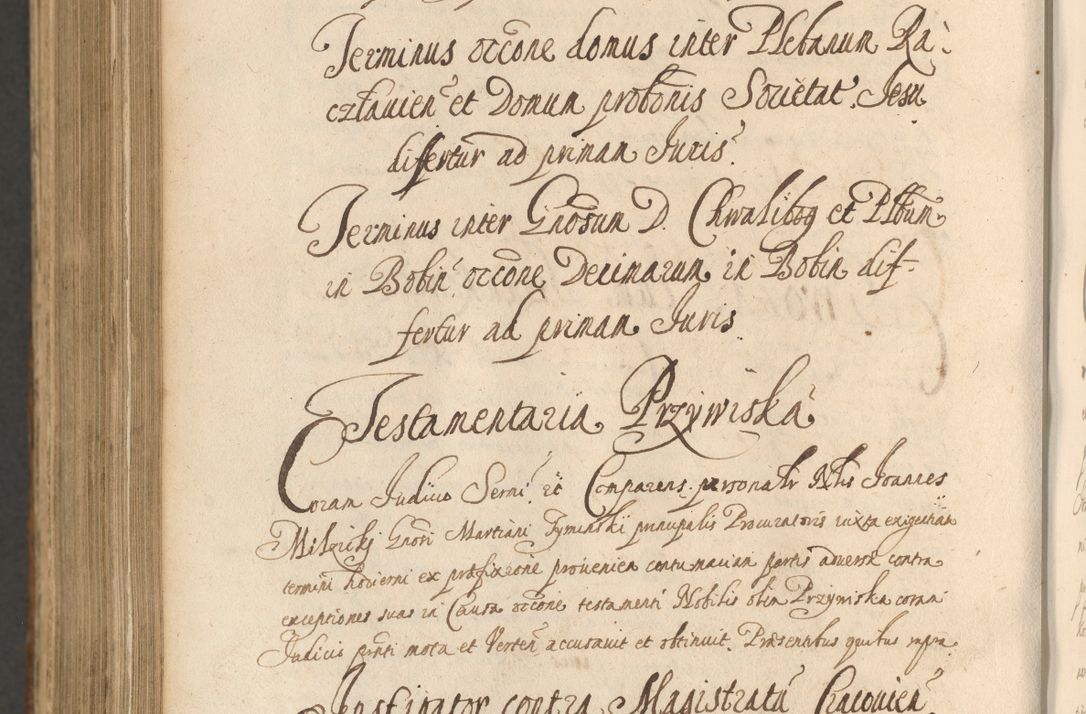 Terminus occone domus inter Plebanum Ra-
cztavien et Domum probonis Societat. Jesu
differtur ad primam Juris.
Terminus inter Gnosum D. Chwalibog et Plbum
in Bobin occone Decimarum in Bobin dif-
fertur ad primam Juris
Testamentaria Przywiska
Coram Judicio Sermi etc Comparens personalr Nblis Joannes
Milzicki Gnosi Martiani Tyminskii principalis Procuratoris iuxta exigentiam
termini hodierni ex præfixione provenien contumaciam partis adversæ contra
exceptiones suas in Causa occone testamenti Nobilis olim Przywiska coram
Judicio pnti mota et Verten accusavit et obtinuit. Præsentibus quibus supra
Instigator contra Magistratu Cracovien